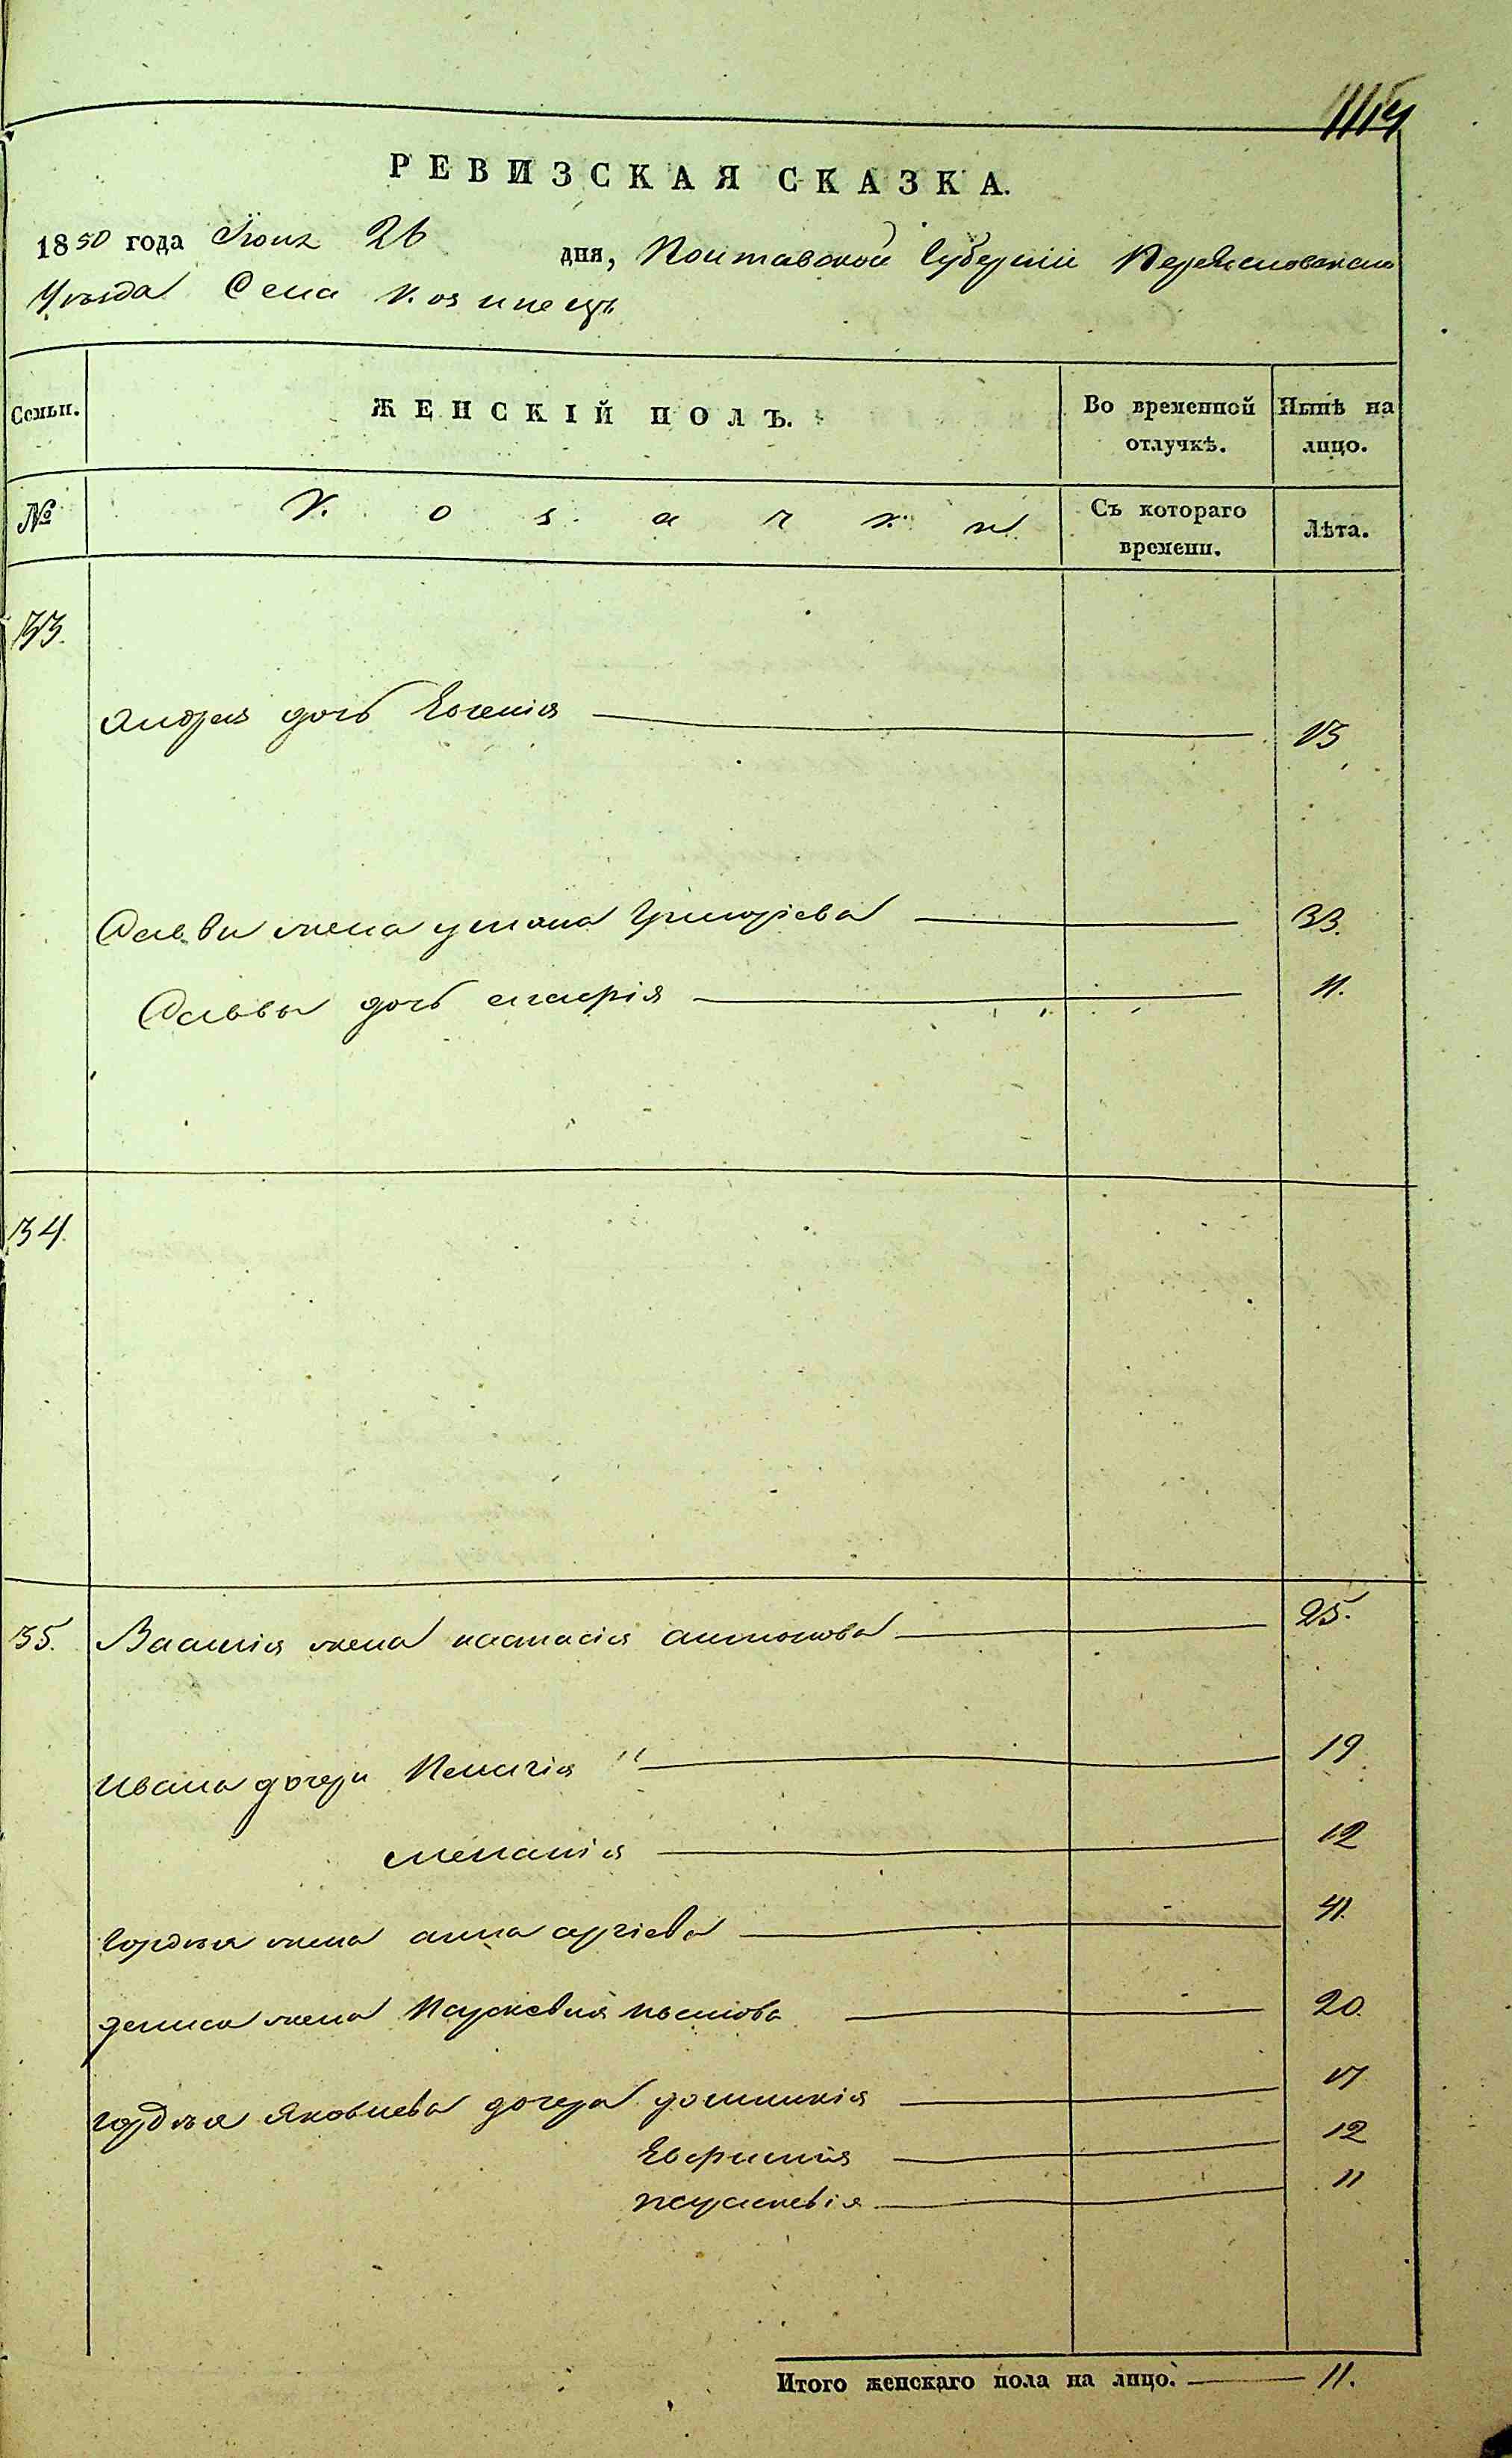 РЕВИЗСКАЯ СКАЗКА.
1850 года Іюня 26 дня, Полтавской Губерніи Переясловскаго
Уѣзда Села Козинецъ
Семьи. ЖЕНСКІЙ ПОЛЪ. Во временной отлучкѣ. Нынѣ на лицо.
№ Козачки Съ котораго времени. Лѣта.
33.
Андрея дочь Евгенія 15
Саввы жена Ульяна Григоріева 33.
Саввы дочь Марія 11.
34.
35. Василія жена Настасія Антонова 25.
Ивана дочери Пелагія " 19
Меланія 12
Гордѣя жена Анна Сергіева 41.
Дениса жена Параскевія 20
Гордѣя Яковлева дочери Домникія 17
Евфимія 12
Параскевія 11
Итого женскаго пола на лицо. 11.